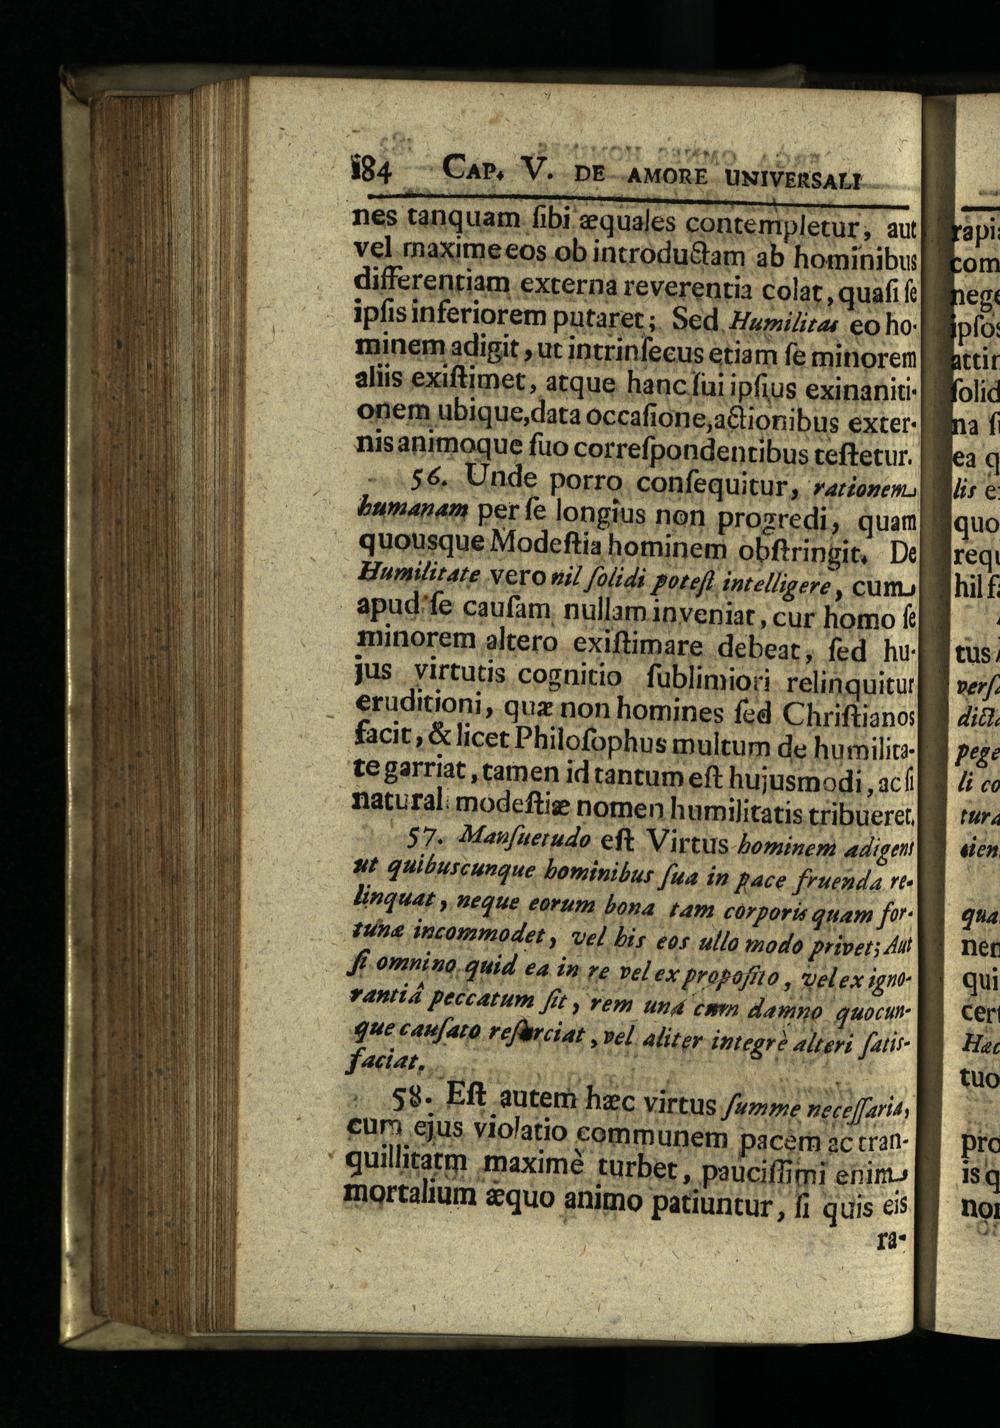 184 CAP. V. DE AMORE UNIVERSALI
nes tanquam ſibi æquales contempletur, aut
vel maxime eos ob introductam ab hominibus
differentiam externa reverentia colat, quaſi ſe
ipſis inferiorem putaret; Sed Humilitas eo ho-
minem adigit, ut intrinſecus etiam ſe minorem
aliis exiſtimet, atque hanc ſui ipſius exinaniti-
onem ubique, data occaſione, actionibus exter-
nis animoque ſuo correſpondentibus teſtetur.
56. Unde porro conſequitur, rationem
humanam per ſe longius non progredi, quam
quousque Modeſtia hominem obſtringit. De
Humilitate vero nil ſolidi poteſt intelligere, cum
apud ſe cauſam nullam inveniat, cur homo ſe
minorem altero exiſtimare debeat, ſed hu-
jus virtutis cognitio ſublimiori relinquitur
eruditioni, quæ non homines ſed Chriſtianos
facit, & licet Philoſophus multum de humilita-
te garriat, tamen id tantum eſt hujusmodi, ac ſi
natural. modeſtiæ nomen humilitatis tribueret.
57. Manſuetudo eſt Virtus hominem adigens
ut quibuscunque hominibus ſua in pace fruenda re-
linquat, neque eorum bona tam corporis quam for-
tunæ incommodet, vel his eos ullo modo privet; Aut
ſi omnino quid ea in re vel ex propoſito, vel ex igno-
rantiâ peccatum ſit, rem unà cum damno quocun-
que cauſato reſarciat, vel aliter integrè alteri ſatis-
faciat.
58. Eſt autem hæc virtus ſumme neceſſaria,
cum ejus violatio communem pacem ac tran-
quillitatm maximè turbet, pauciſſimi enim
mortalium æquo animo patiuntur, ſi quis eis
ra-